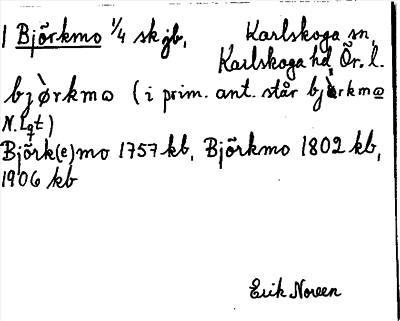 1 Björkmo 1/4 sk jb, Karlskoga sn,
Karlskoga hd, Ör. l.
bjørkmɷ (i prim. ant. står bjørkmɷ
N. Lqt)
Björk(e)mo 1757 kb, Björkmo 1802 kb,
1906 kb
Erik Noreen